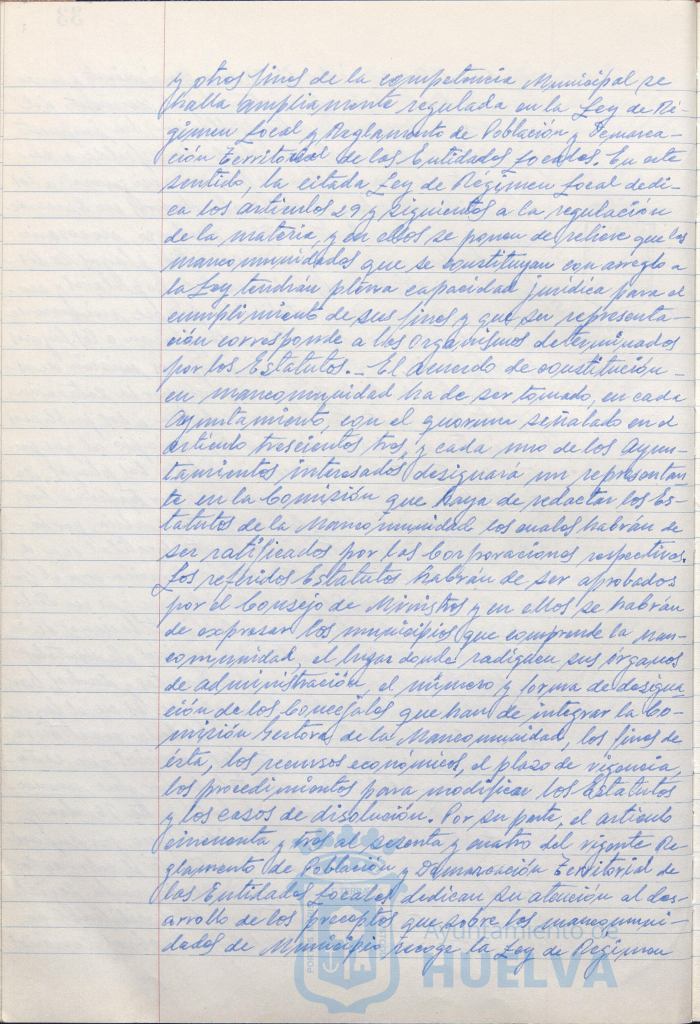 y otros fines de la competencia Municipal se
halla ampliamente regulada en la Ley de Ré-
gimen Local y Reglamento de Población y Demarca-
ción Territorial de las Entidades Locales. En este
sentido, la citada Ley de Régimen Local dedi-
ca los artículos 29 y siguientes a la regulación
de la materia, y en ellos se ponen de relieve que las
mancomunidades que se constituyan con arreglo a
la Ley tendrán plena capacidad jurídica para el
cumplimiento de sus fines y que su representa-
ción corresponde a los Organismos determinados
por los Estatutos. - El acuerdo de constitución
en mancomunidad ha de ser tomado, en cada
Ayuntamiento, con el quorum señalado en el
artículo trescientos tres, y cada uno de los Ayun-
tamientos interesados designará un representan
te en la Comisión que haya de redactar los Es-
tatutos de la Mancomunidad los cuales habrán de
ser ratificados por las Corporaciones respectivas.
Los referidos Estatutos habrán de ser aprobados
por el Consejo de Ministros y en ellos se habrán
de expresar los municipios que comprende la man-
comunidad, el lugar donde radiquen sus órganos
de administración, el número y forma de designa
ción de los Concejales que han de integrar la Co-
misión Gestora de la Mancomunidad, los fines de
ésta, los recursos económicos, el plazo de vigencia,
los procedimientos para modificar los Estatutos
y los casos de disolución. Por su parte, el artículo
cincuenta y tres al sesenta y cuatro del vigente Re-
glamento de Población y Demarcación Territorial de
las Entidades Locales, dedican su atención al des-
arrollo de los preceptos que sobre las mancomuni-
dades de Municipio recoge la Ley de Régimen
Ayuntamiento de
HUELVA